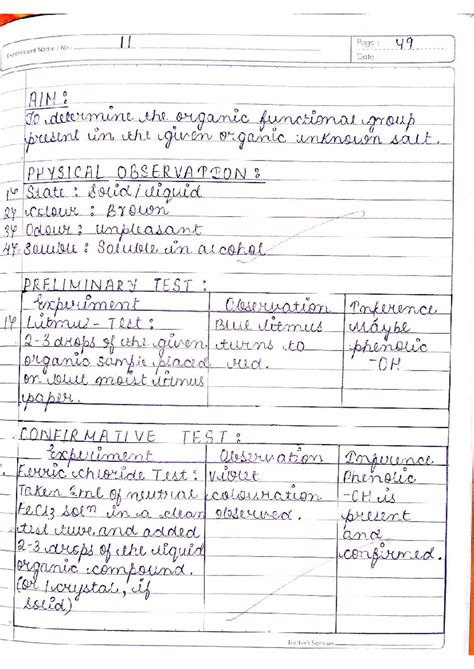 Experiment Name / No. 11
Page : 49
Date :
AIM :
To determine the organic functional group
present in the given organic unknown salt.
PHYSICAL OBSERVATION :
1→ State : Solid / liquid
2→ Colour : Brown
3→ Odour : Unpleasant
4→ Soluble : Soluble in alcohol
PRELIMINARY TEST :
Experiment Observation Inference
1→ Litmus - Test : Blue litmus Maybe
2-3 drops of the given turns to phenolic
organic sample placed red. -OH
on blue moist litmus
paper.
CONFIRMATIVE TEST :
Experiment Observation Inference
Ferric chloride Test : Violet Phenolic
Taken 2ml of neutral colouration -OH is
FeCl3 solⁿ in a clean observed. present
test tube and added and
2-3 drops of the liquid confirmed.
organic compound.
(or 1 crystal, if
solid)
Teacher's Signature